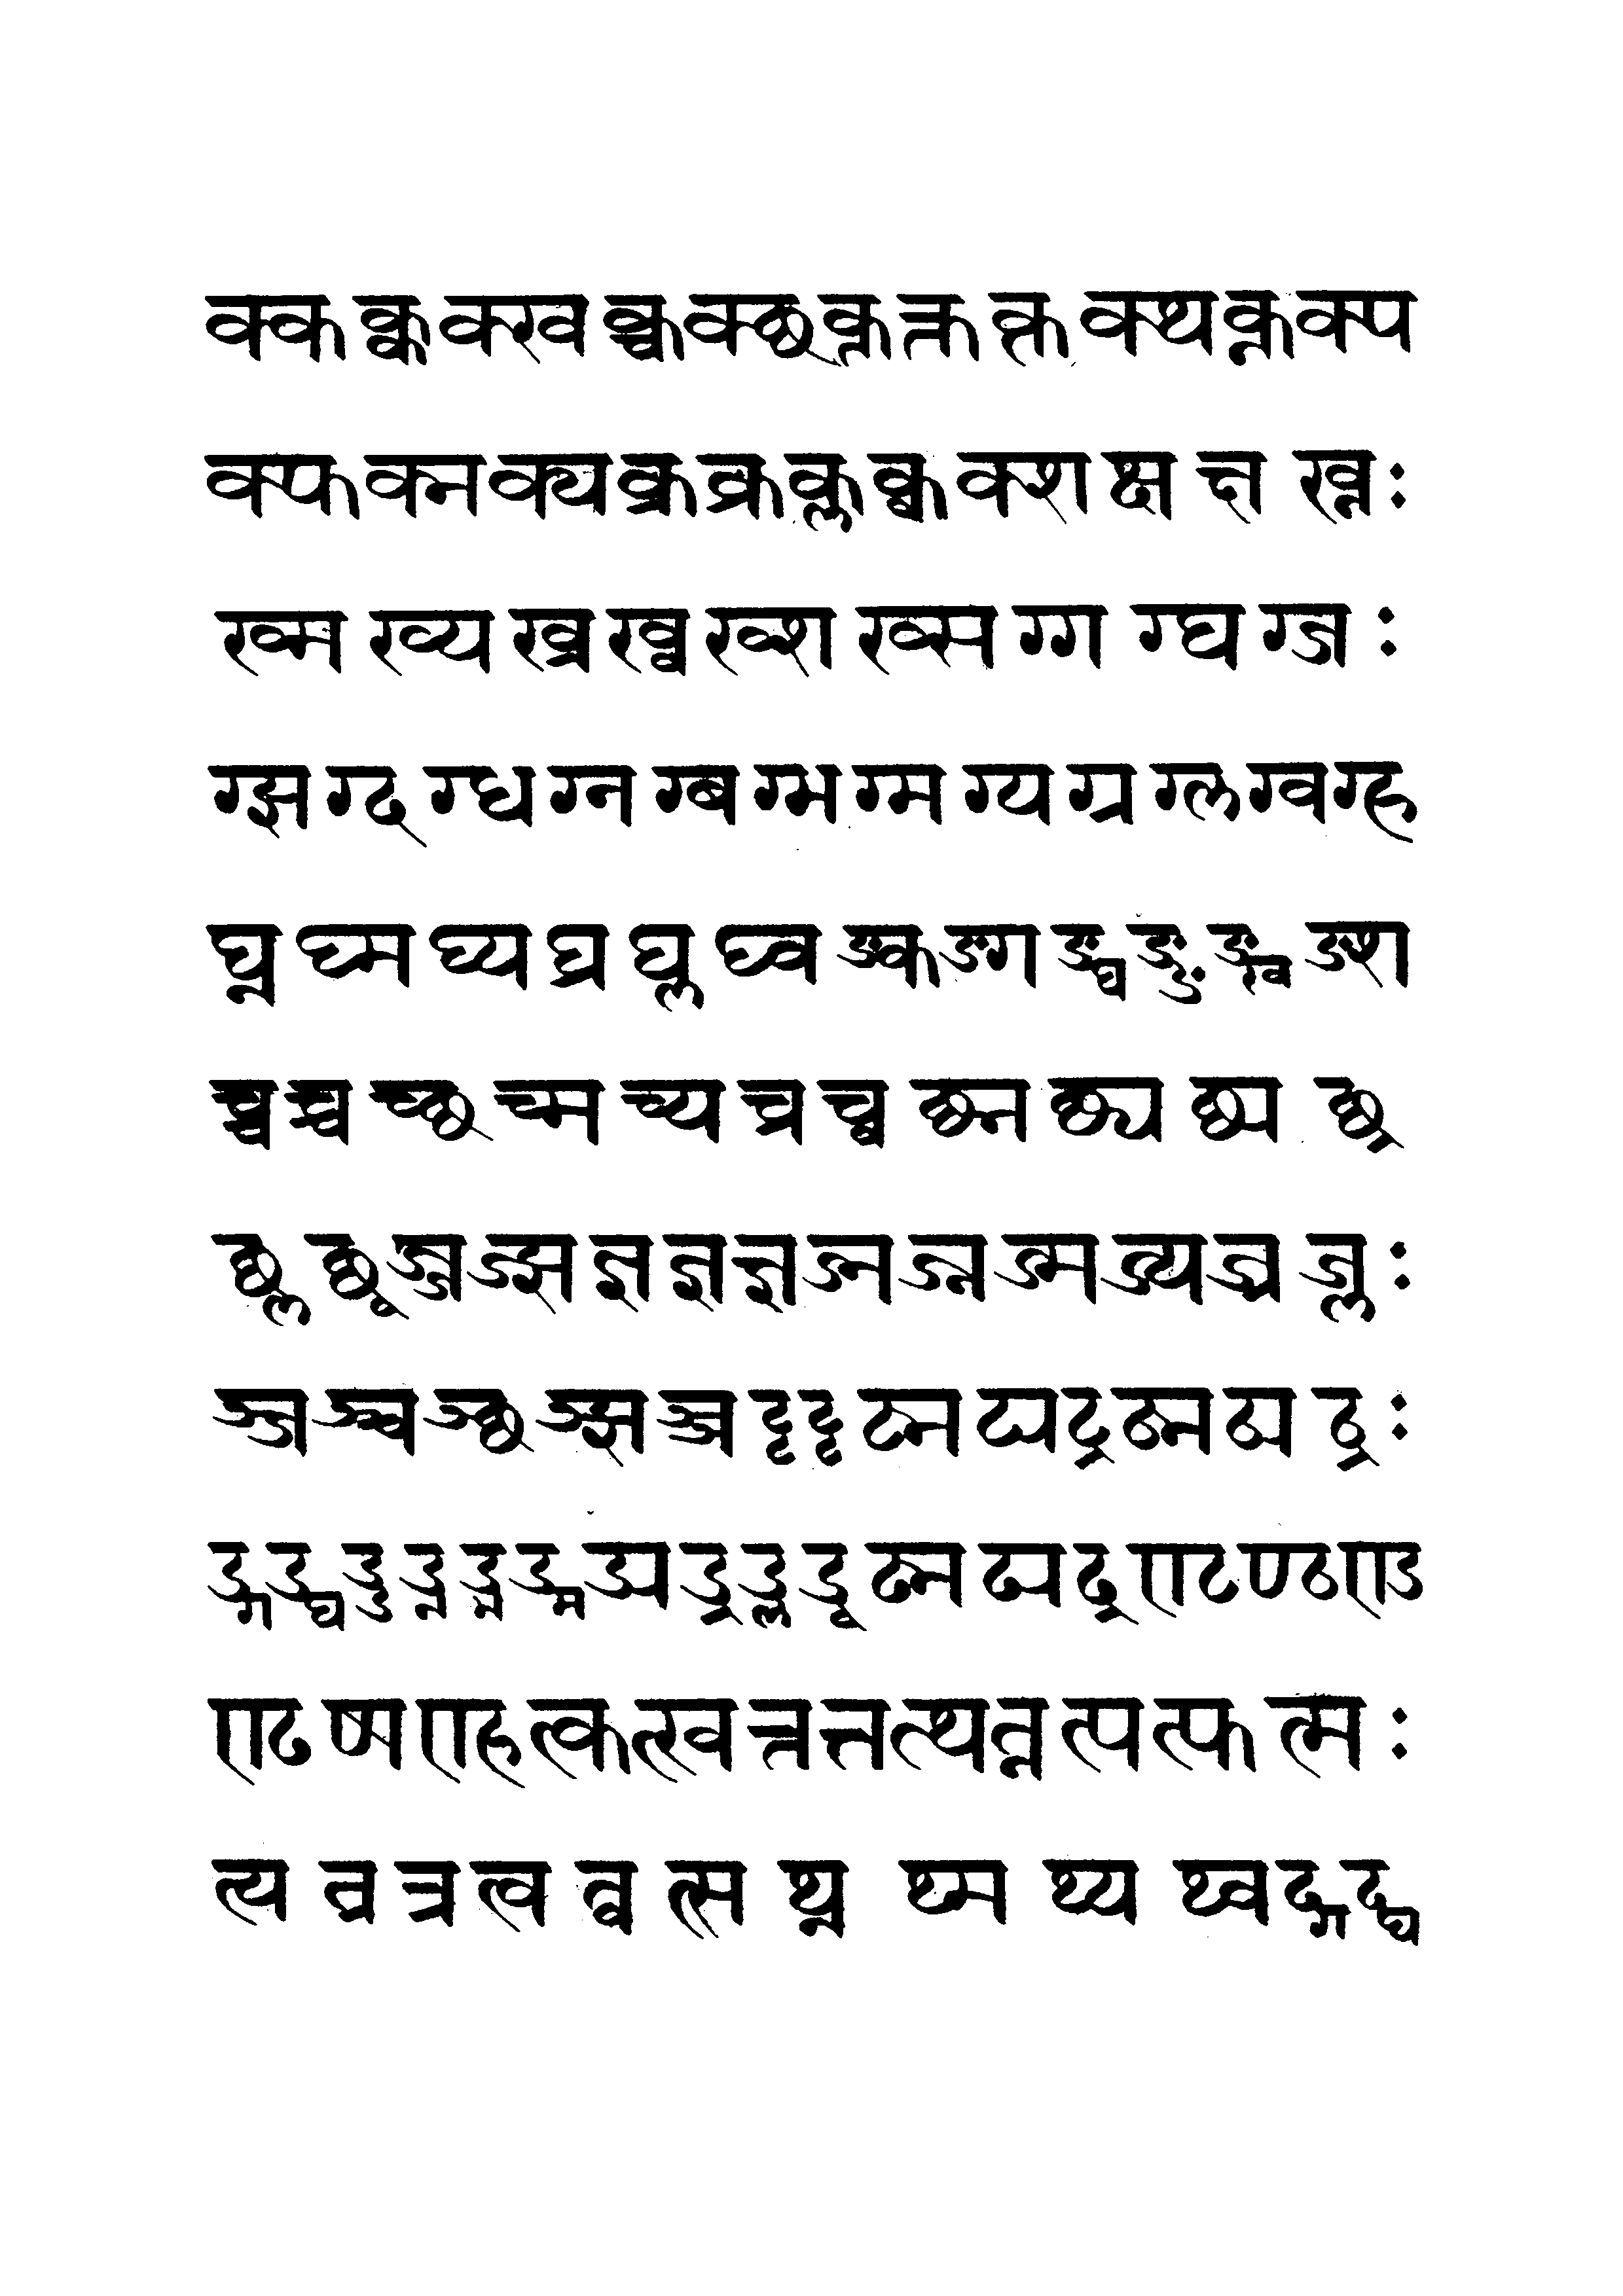 क्क क्क क्ख क्च क्छ क्ण क्त क्त क्थ क्न क्प
क्फ क्म क्य क्र क्र क्ल क्व क्श क्ष क्ष ख्न :
ख्म ख्य ख्र ख्व ख्श ख्स ग्ग ग्घ ग्ज :
ग्झ ग्ढ ग्ध ग्न ग्ब ग्भ ग्म ग्य ग्र ग्ल ग्व ग्ह
घ्न घ्म घ्य घ्र घ्ल घ्व ङ्क ङ्ग ङ्घ ङ्ङ ङ्ख ङ्श
च्च च्च च्छ च्म च्य च्र च्व छ्न छ्य छ्य छ्र
छ्ल छृ ज्ज ज्झ ज्ञ ज्ञ ज्ञ ज्न ज्न ज्म ज्य ज्र ज्ल :
ञ्ज ञ्च ञ्छ ञ्झ ञ्ञ ट्ट ट्ट ट्न ट्य ट्र ठ्न ठ्य ठ्र :
ड्ग ड्घ ड्ड ड्न ड्न ड्म ड्य ड्र ड्ल डृ ढ्न ढ्य ढ्र ण्ट ण्ठ ण्ड
ण्ढ ण्म ण्ह त्क त्ख त्त त्त त्थ त्न त्प त्फ त्म :
त्य त्र त्र त्व त्व त्स थ्न थ्म थ्य थ्व द्ग द्घ